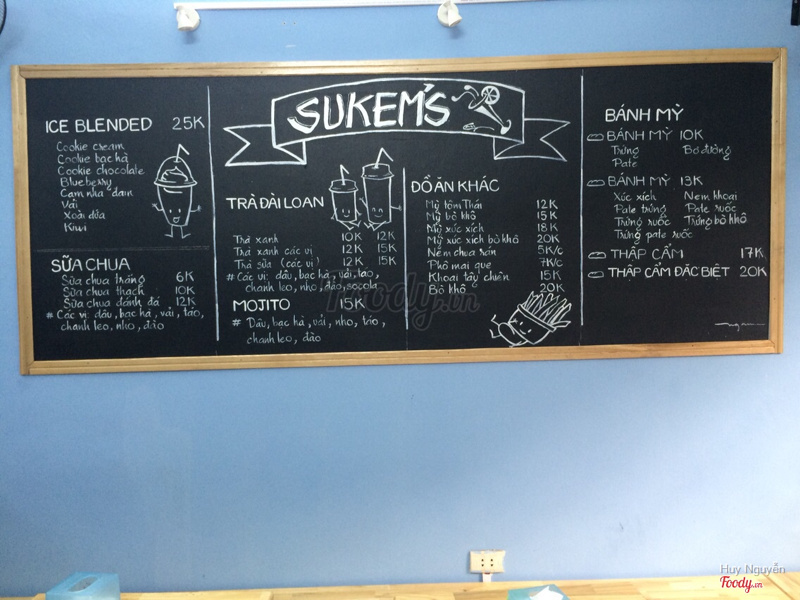 SUKEM'S
ICE BLENDED 25K
Cookie cream
Cookie bạc hà
Cookie chocolate
Blueberry
Cam nha đam
Vải
Xoài dứa
Kiwi
SỮA CHUA
Sữa chua trắng 6K
Sữa chua thạch 10K
Sữa chua đánh đá 12K
# Các vị: dâu, bạc hà, vải, táo,
chanh leo, nho, đào
TRÀ ĐÀI LOAN
Trà xanh 10K 12K
Trà xanh các vị 12K 15K
Trà sữa (các vị) 12K 15K
# Các vị: dâu, bạc hà, vải, táo,
chanh leo, nho, đào, socola
MOJITO 15K
# Dâu, bạc hà, vải, nho, táo,
chanh leo, đào
ĐỒ ĂN KHÁC
Mỳ tôm Thái 12K
Mỳ bò khô 15K
Mỳ xúc xích 18K
Mỳ xúc xích bò khô 20K
Nem chua rán 5K/c
Phô mai que 7K/c
Khoai tây chiên 15K
Bò khô 20K
BÁNH MỲ
BÁNH MỲ 10K
Trứng Bơ đường
Pate
BÁNH MỲ 13K
Xúc xích Nem khoai
Pate trứng Pate ruốc
Trứng ruốc Trứng bò khô
Trứng pate ruốc
THẬP CẨM 17K
THẬP CẨM ĐẶC BIỆT 20K
Foody.vn
Huy Nguyễn
Foody.vn